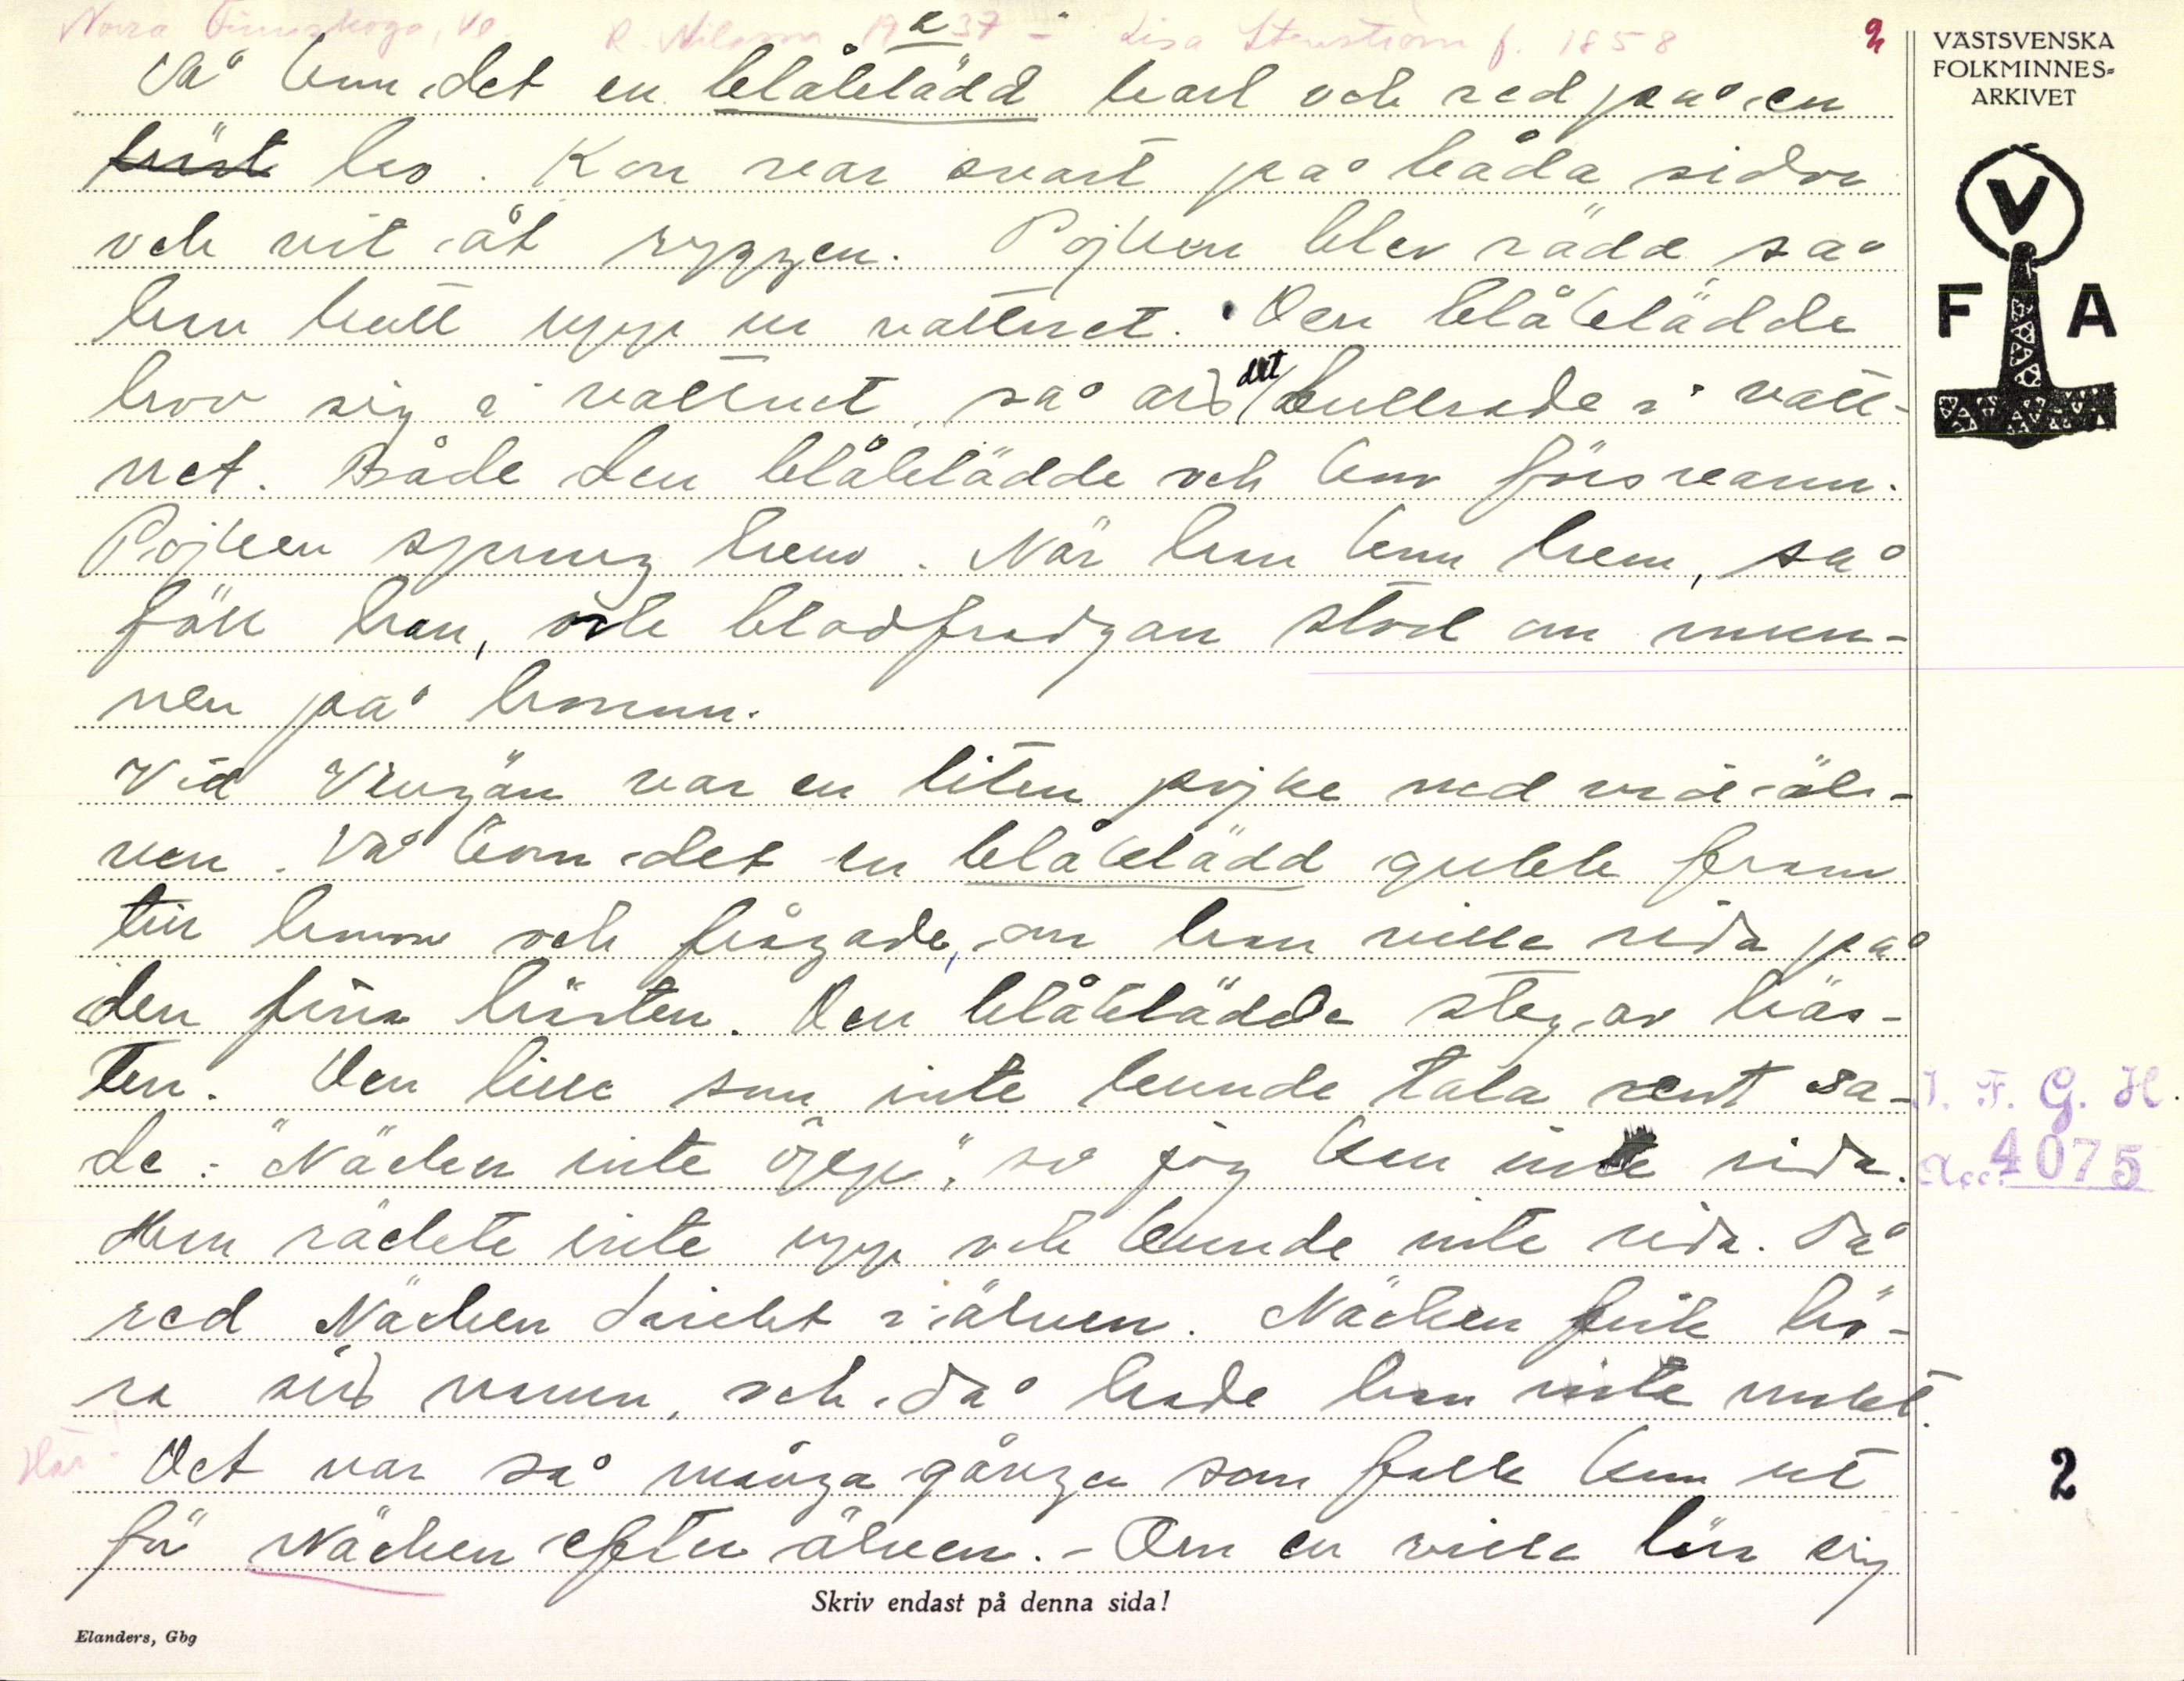 Norra Finnskoga, Vl. R. Nilsson 19 37 - Lisa Stenström f. 1858
2
VÄSTSVENSKA
FOLKMINNES-
ARKIVET
V
F A
Då kom det en blåklädd karl och red på en
häst ko. Kon var svart på båda sidor
och vit åt ryggen. Pojken blev rädd, så
han hull upp ur vattnet. Den blåklädde
hov sig i vattnet, så att det bullrade i vatt-
net. Både den blåklädde och kon försvann.
Pojken sprang hem. När han kom hem, så
föll han, och blodfradgan stod om mun-
nen på honom.
Vid Vingän var en liten pojke ned vid äl-
ven. Då kom det en blåklädd gubbe fram
till honom och frågade, om han ville rida på
den fina hästen. Den blåklädde steg av häs-
ten. Den lille som inte kunde tala rent sa-
de: "Näcken inte öpp", so jög kan inte rida.
Han räckte inte upp och kunde inte rida. Då
red Näcken direkt i älven. Näcken fick hö-
ra sitt namn, och då hade han inte makt.
Här
Det var så många gånger som folk kom ut
för Näcken efter älven. - Om en ville lära sig
J. F. G. H.
Acc. 4075
2
Skriv endast på denna sida!
Elanders, Gbg